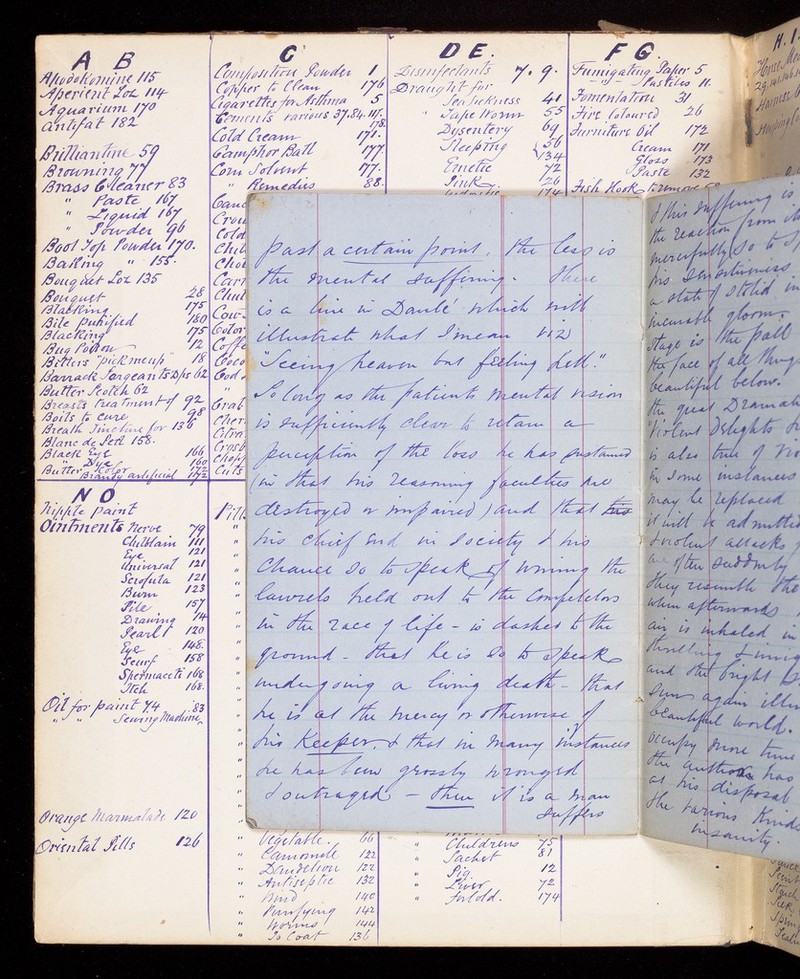 A B
Apodokomine 115
Aperient Loz 114
Aquarium 170
Antifat 182
Brilliantine 59
Browning 77
Brass Cleaner 83
" Paste 167
" Liquid 167
" Powder 96
Boot Top Powder 170.
Baking " 155.
Bouquet Loz 135
Bouquet 28
Blacking 175
Bile purified 180
Blacking 175
Bug Poison 12
Bitters "pickmeup" 18
Barrack Sergeants Dps 62
Butter Scotch 62
Breasts treatment of 92
Boils to cure 98
Breath Tincture for 136
Blanc de Perl 158.
Black Eye 166
" Dye 160
Butter Color 172
Brandy artificial 172
C
Composition Powder 1
Copper to Clean 176
Cigarettes for Asthma 5
Cements various 37.84.111.
178.
Cold Cream 171.
Camphor Ball 177
Corn Solvent 177.
" Remedies 88.
D E.
Disinfectants 7. 9.
Draught for
Sea Sickness 41
" Tape Worm 55
Dysentery 69
Sleeping 56
134
Emetic 72
Pink 26
F G.
Fumigating Paper 5
Pastiles 11.
Fomentation 31
Fire Coloured 26
Furniture Oil 172
Cream 171
Gloss 173
Paste 132
Fish Hook to remove
H. I.
N O
Nipple paint
Ointments Nerve 79
Chilblain 111
Eye 121
Universal 121
Scrofula 121
Burn 123
Pile 157
Drawing 14
Pearl 120
Eye 148
Scurf 158
Spermaceti 168
Itch 168.
Oil for paint 74. 83
" " Sewing Machine
Orange Marmalade 120
Oriental Pills 126
Pills
" Vegetable. 66
" Camomile 122
" Dandelion 122
" Antiseptic 132
" Wind 140
" Purifying 142
" Worms 144
" To Coat 136
" Childrens 75
" Sachet 81
" Pig. 12
" Liver 72
" for Cold. 174
past a certain point, the less is
the mental suffering. There
is a line in Dante' which will
illustrate what I mean viz
"Seeing heaven but feeling hell."
So long as the patients mental vision
is sufficiently clear to retain a
perception of the loss he has sustained
(in that his reasoning faculties are
destroyed or impaired) and that his
his chief end in Society & his
Chance so to speak of winning the
lawrels held out to the Competitors
in the race of life - is dashed to the
ground - that he is so to speak
undergoing a living death - that
he is at the mercy or otherwise of
his Keeper, & that in many instances
he has been grossly wronged
& outraged - then it is a man
suffers
of this suffering is
the reaction from
mercifully so to
his sensitiveness
a state of stolid
incurable gloom.
stage is the pall
the face of all things
beautiful below.
the great Dramati
Violent Delights
is also true of
in some instances
may be replaced
it will be admitted
& violent attacks
are often suddenly
they resemble the
when afterwards
air is inhaled in
thrilling &
and the bright
Sun again
beautiful world.
occupy more time
the author has
at his disposal
the various kinds
insanity.